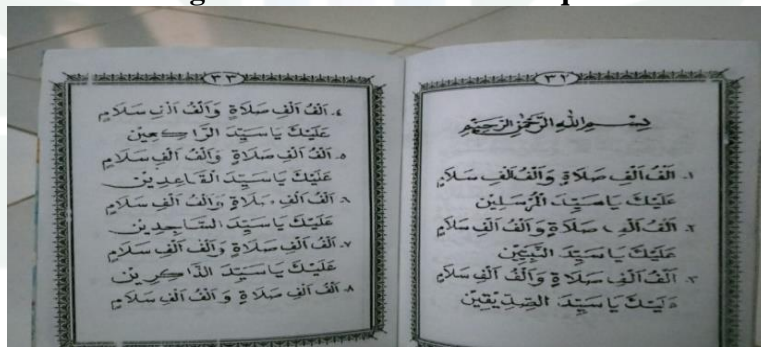 ٣٢
بِسْمِ اللهِ الرَّحْمٰنِ الرَّحِيْمِ
١. اَلْفُ اَلْفِ صَلَاةٍ وَاَلْفُ اَلْفِ سَلَامٍ
عَلَيْكَ يَا سَيِّدَ الْمُرْسَلِيْنَ
٢. اَلْفُ اَلْفِ صَلَاةٍ وَاَلْفُ اَلْفِ سَلَامٍ
عَلَيْكَ يَا سَيِّدَ النَّبِيِّيْنَ
٣. اَلْفُ اَلْفِ صَلَاةٍ وَاَلْفُ اَلْفِ سَلَامٍ
يَا سَيِّدَ الصِّدِّيْقِيْنَ
٣٣
٤. اَلْفُ اَلْفِ صَلَاةٍ وَاَلْفُ اَلْفِ سَلَامٍ
عَلَيْكَ يَا سَيِّدَ الرَّاكِعِيْنَ
٥. اَلْفُ اَلْفِ صَلَاةٍ وَاَلْفُ اَلْفِ سَلَامٍ
عَلَيْكَ يَا سَيِّدَ الْقَاعِدِيْنَ
٦. اَلْفُ اَلْفِ صَلَاةٍ وَاَلْفُ اَلْفِ سَلَامٍ
عَلَيْكَ يَا سَيِّدَ السَّاجِدِيْنَ
٧. اَلْفُ اَلْفِ صَلَاةٍ وَاَلْفُ اَلْفِ سَلَامٍ
عَلَيْكَ يَا سَيِّدَ الذَّاكِرِيْنَ
٨. اَلْفُ اَلْفِ صَلَاةٍ وَاَلْفُ اَلْفِ سَلَامٍ